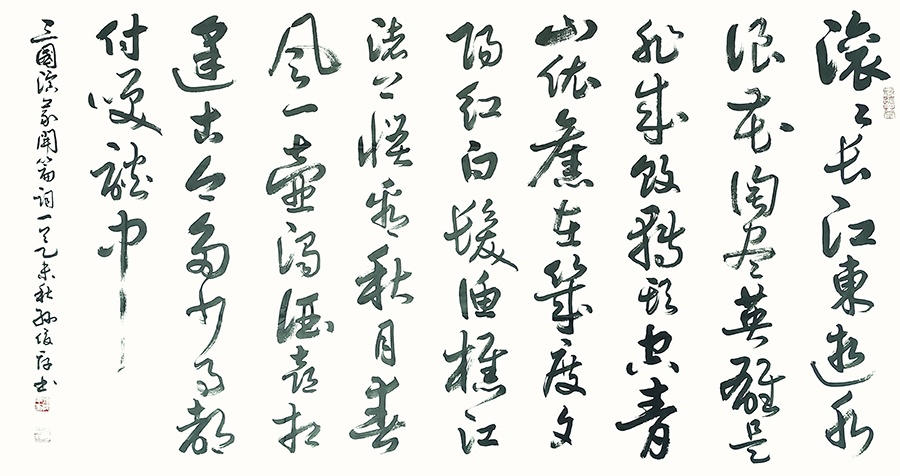 滚〻长江東逝水
浪花淘尽英雄是
非成敗轉頭空青
山依舊在幾度夕
陽红白髮渔樵江
渚上惯看秋月春
风一壶浊酒喜相
逢古今多少事都
付笑談中
三國演义開篇詞一首乙未秋孙俊书